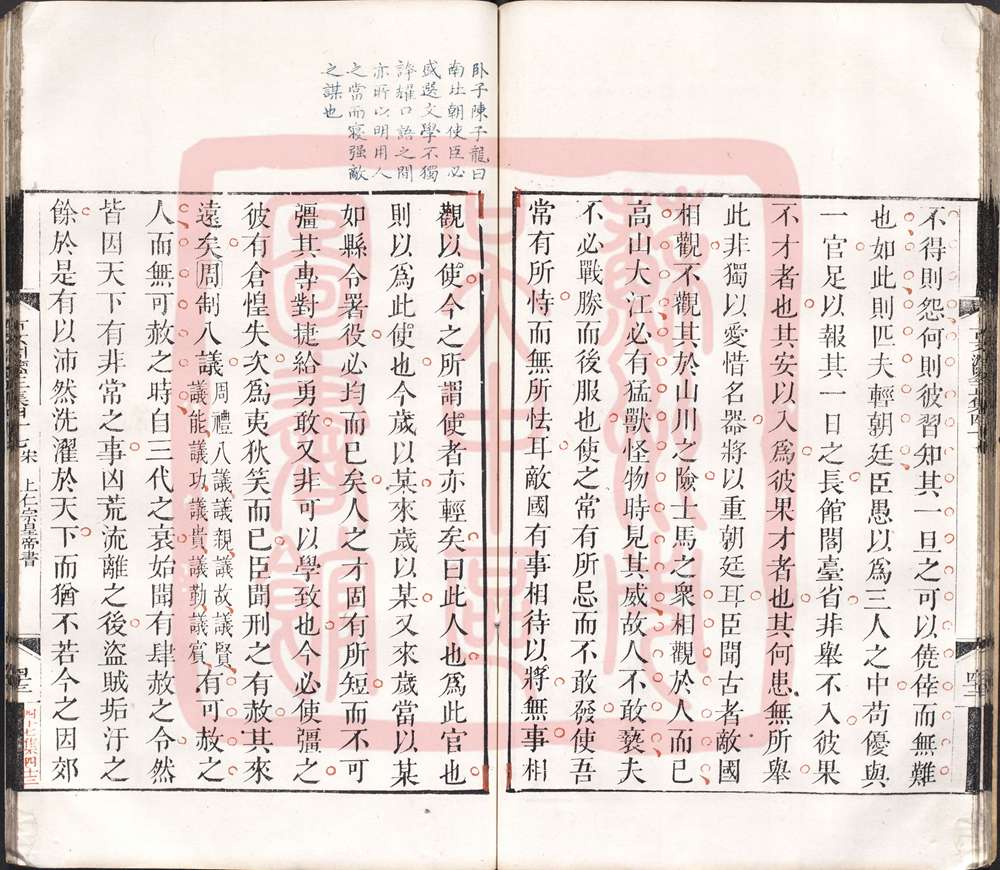 不得則怨何則彼習知其一旦之可以僥倖而無難
也如此則匹夫輕朝廷臣愚以爲三人之中苟優與
一官足以報其一日之長館閣臺省非舉不入彼果
不才者也其安以入爲彼果才者也其何患無所舉
此非獨以愛惜名器將以重朝廷耳臣聞古者敵國
相觀不觀其於山川之險士馬之衆相觀於人而已
高山大江必有猛獸怪物時見其威故人不敢褻夫
不必戰勝而後服也使之常有所忌而不敢發使吾
常有所恃而無所怯耳敵國有事相待以將無事相
臥子陳子龍曰
南北朝使臣必
盛選文學不獨
誇耀口語之間
亦所以明用人
之當而寢强敵
之謀也
觀以使今之所謂使者亦輕矣曰此人也爲此官也
則以爲此使也今歲以某來歲以某又來歲當以某
如縣令署役必均而已矣人之才固有所短而不可
彊其專對捷給勇敢又非可以學致也今必使彊之
彼有倉惶失次爲夷狄笑而已臣聞刑之有赦其來
遠矣周制八議周禮八議議親議故議賢議能議功議貴議勤議賓有可赦之
人而無可赦之時自三代之衰始聞有肆赦之令然
皆因天下有非常之事凶荒流離之後盜賊垢汙之
餘於是有以沛然洗濯於天下而猶不若今之因郊
宋
上仁宗皇帝書
四十七集四十三